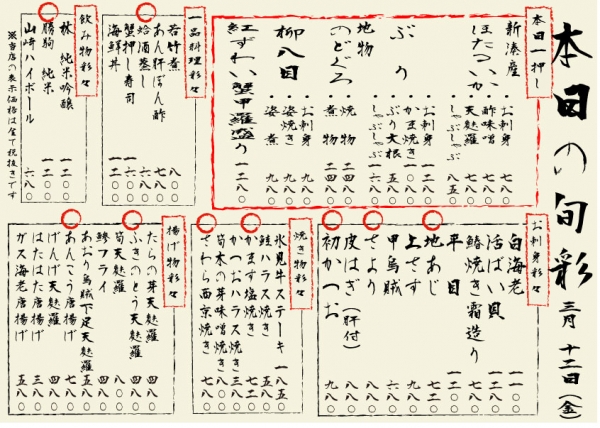 本日の旬彩 三月 十二日(金)
本日一押し
新湊産
ほたるいか
・お刺身 七八〇
・酢味噌
・天麩羅
・しゃぶしゃぶ 八五〇
ぶり
・お刺身 一二〇〇
・かま焼き
・ぶり大根
・しゃぶしゃぶ
地物
のどぐろ
・焼物 二四八〇
・煮物 二四八〇
柳八目
・お刺身 九八〇
・姿焼き 九八〇
・姿煮 九八〇
紅ずわい蟹甲羅盛り 一二八〇
一品料理彩々
若竹煮 八〇〇
あん肝ぽん酢 七八〇
蛤酒蒸し 六八〇
蟹押し寿司 一二〇〇
海鮮丼 一二〇〇
飲み物彩々
林 純米吟醸 一二〇〇
勝駒 純米 一二〇〇
山崎ハイボール 六八〇
※当店の表示価格は全て税抜きです
お刺身彩々
白海老 一一〇〇
活ばい貝 一二八〇
鰆焼き霜造り 七八〇
平目 一二〇〇
地あじ 七二〇
上さす 九八〇
甲烏賊 六八〇
さより 八八〇
皮はぎ(肝付) 九八〇
初かつお 九八〇
焼き物彩々
氷見牛ステーキ 一八五〇
鮭ハラス焼き 五八〇
かます塩焼き 七八〇
かつおハラス焼き 三八〇
筍木の芽味噌焼き 七八〇
さわら西京焼き 七八〇
揚げ物彩々
たらの芽天麩羅 四八〇
ふきのとう天麩羅 四八〇
筍天麩羅 八〇〇
鯵フライ 四八〇
あおり烏賊下足天麩羅 五八〇
あんこう唐揚げ 七八〇
げんげ天麩羅 四八〇
はたはた唐揚げ 三八〇
ガス海老唐揚げ 五八〇